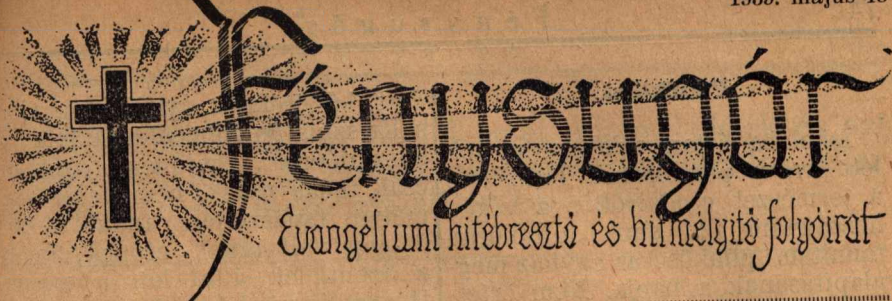 május
Fénysugár
Evangéliumi hitébresztő és hitmélyítő folyóirat